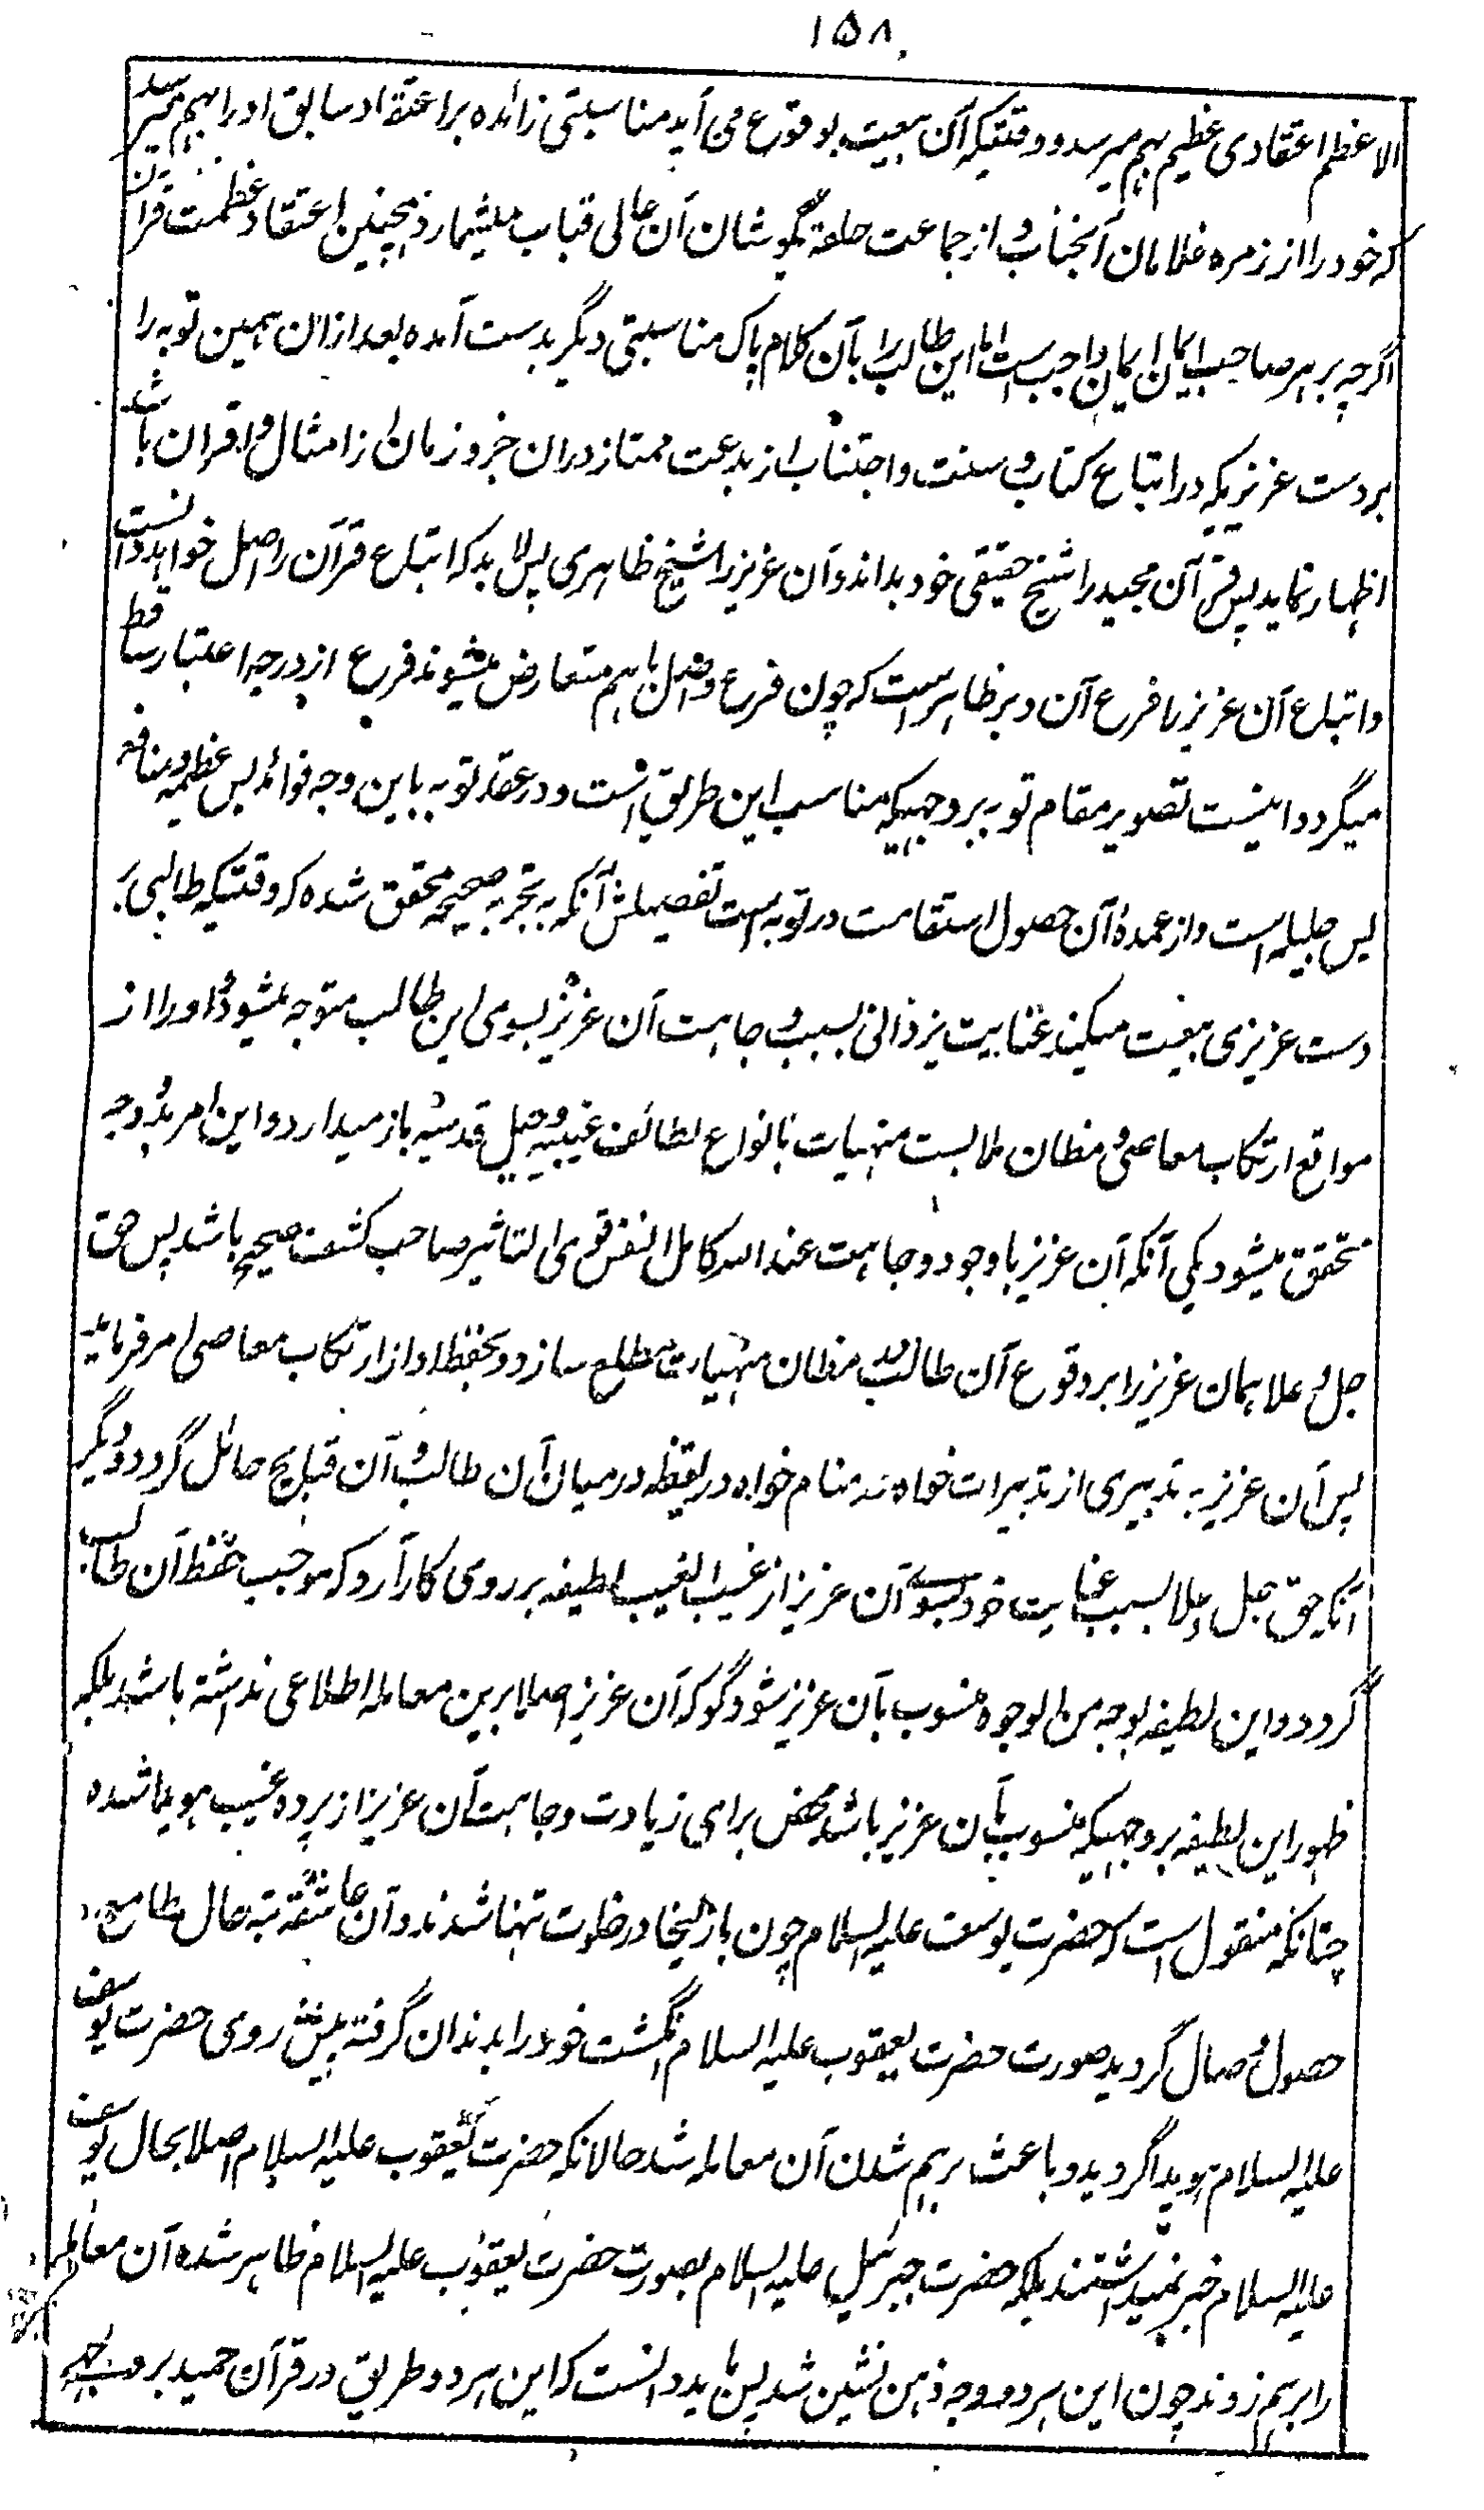 ۱۵۸
الاعظم اعتقادی عظیم بهم میرسد و وقتیکه آن بیعت بوقوع می آید مناسبتی زائده بر اعتقاد سابق او را بهم میرسد
که خود را از زمره غلامان آنجناب و از جماعت حلقه بگوشان آن عالی قباب میشمارد همچنین اعتقاد عظمت قرآن
اگرچه بر هر صاحب ایمان واجب است اما این طالب را بآن کلام پاک مناسبتی دیگر بدست آمده بعد ازان همین توبه را
بر دست عزیزیکه در اتباع کتاب و سنت و اجتناب از بدعت ممتاز دران جزو زمان از امثال و اقران باشد
اظهار نماید پس قرآن مجید را شیخ حقیقی خود بداند و آن عزیز را شیخ ظاهری پس لابد که اتباع قرآن را اصل خواهد دانست
و اتباع آن عزیز را فرع آن و پر ظاهر است که چون فرع و اصل باهم متعارض میشوند فرع از درجه اعتبار ساقط
میگردد اینست تصویر مقام توبه بر وجهیکه مناسب این طریق است و در عقد توبه باین وجه فوائد بس عظیمه و منافع
بس جلیله است و از عمده آن حصول استقامت در توبه است تفصیلش آنکه به تجربه صحیحه محقق شده که وقتیکه طالبی بر
دست عزیزی بیعت میکند عنایت یزدانی بسبب وجاهت آن عزیز بسوی این طالب متوجه میشود و او را از
مواقع ارتکاب معاصی و مظان ملابست منهیات بانواع لطائف غیبیه و حیل قدسیه باز میدارد و این امر بدو وجه
متحقق میشود یکی آنکه آن عزیز باوجود وجاهت عند الله کامل النفس قوی التاثیر صاحب کشف صحیح باشد پس حق
جل و علا همان عزیز را بر وقوع آن طالب در مظان منهیات مطلع سازد و بحفظ او از ارتکاب معاصی امر فرماید
پس آن عزیز به تدبیری از تدبیرات خواه در منام خواه در یقظه در میان آن طالب و آن قبایح حائل گردد و دیگر
آنکه حق جل و علا بسبب عنایت خود بسوی آن عزیز از غیب الغیب لطیفه بر روی کار آرد که موجب حفظ آن طالب
گردد و این لطیفه بوجه من الوجوه منسوب بآن عزیز شود گو که آن عزیز اصلا برین معامله اطلاعی نداشته باشد بلکه
ظهور این لطیفه بر وجهیکه منسوب بآن عزیز باشد محض برای زیادت وجاهت آن عزیز از پرده غیب هویدا شده
چنانکه منقول است که حضرت یوسف علیه السلام چون با زلیخا در خلوت تنها شدند و آن عاشقه تبه حال طامع
حصول وصال گردید صورت حضرت یعقوب علیه السلام انگشت خود را بدندان گرفته پیش روی حضرت یوسف
علیه السلام هویدا گردید و باعث برهم شدن آن معامله شد حالانکه حضرت یعقوب علیه السلام اصلا بحال یوسف
علیه السلام خبر نمیداشتند بلکه حضرت جبرئیل علیه السلام بصورت حضرت یعقوب علیه السلام ظاهر شده آن معامله
را برهم زدند چون این هر دو وجه ذهن نشین شد پس باید دانست که این هر دو طریق در قرآن حمید بر وجه